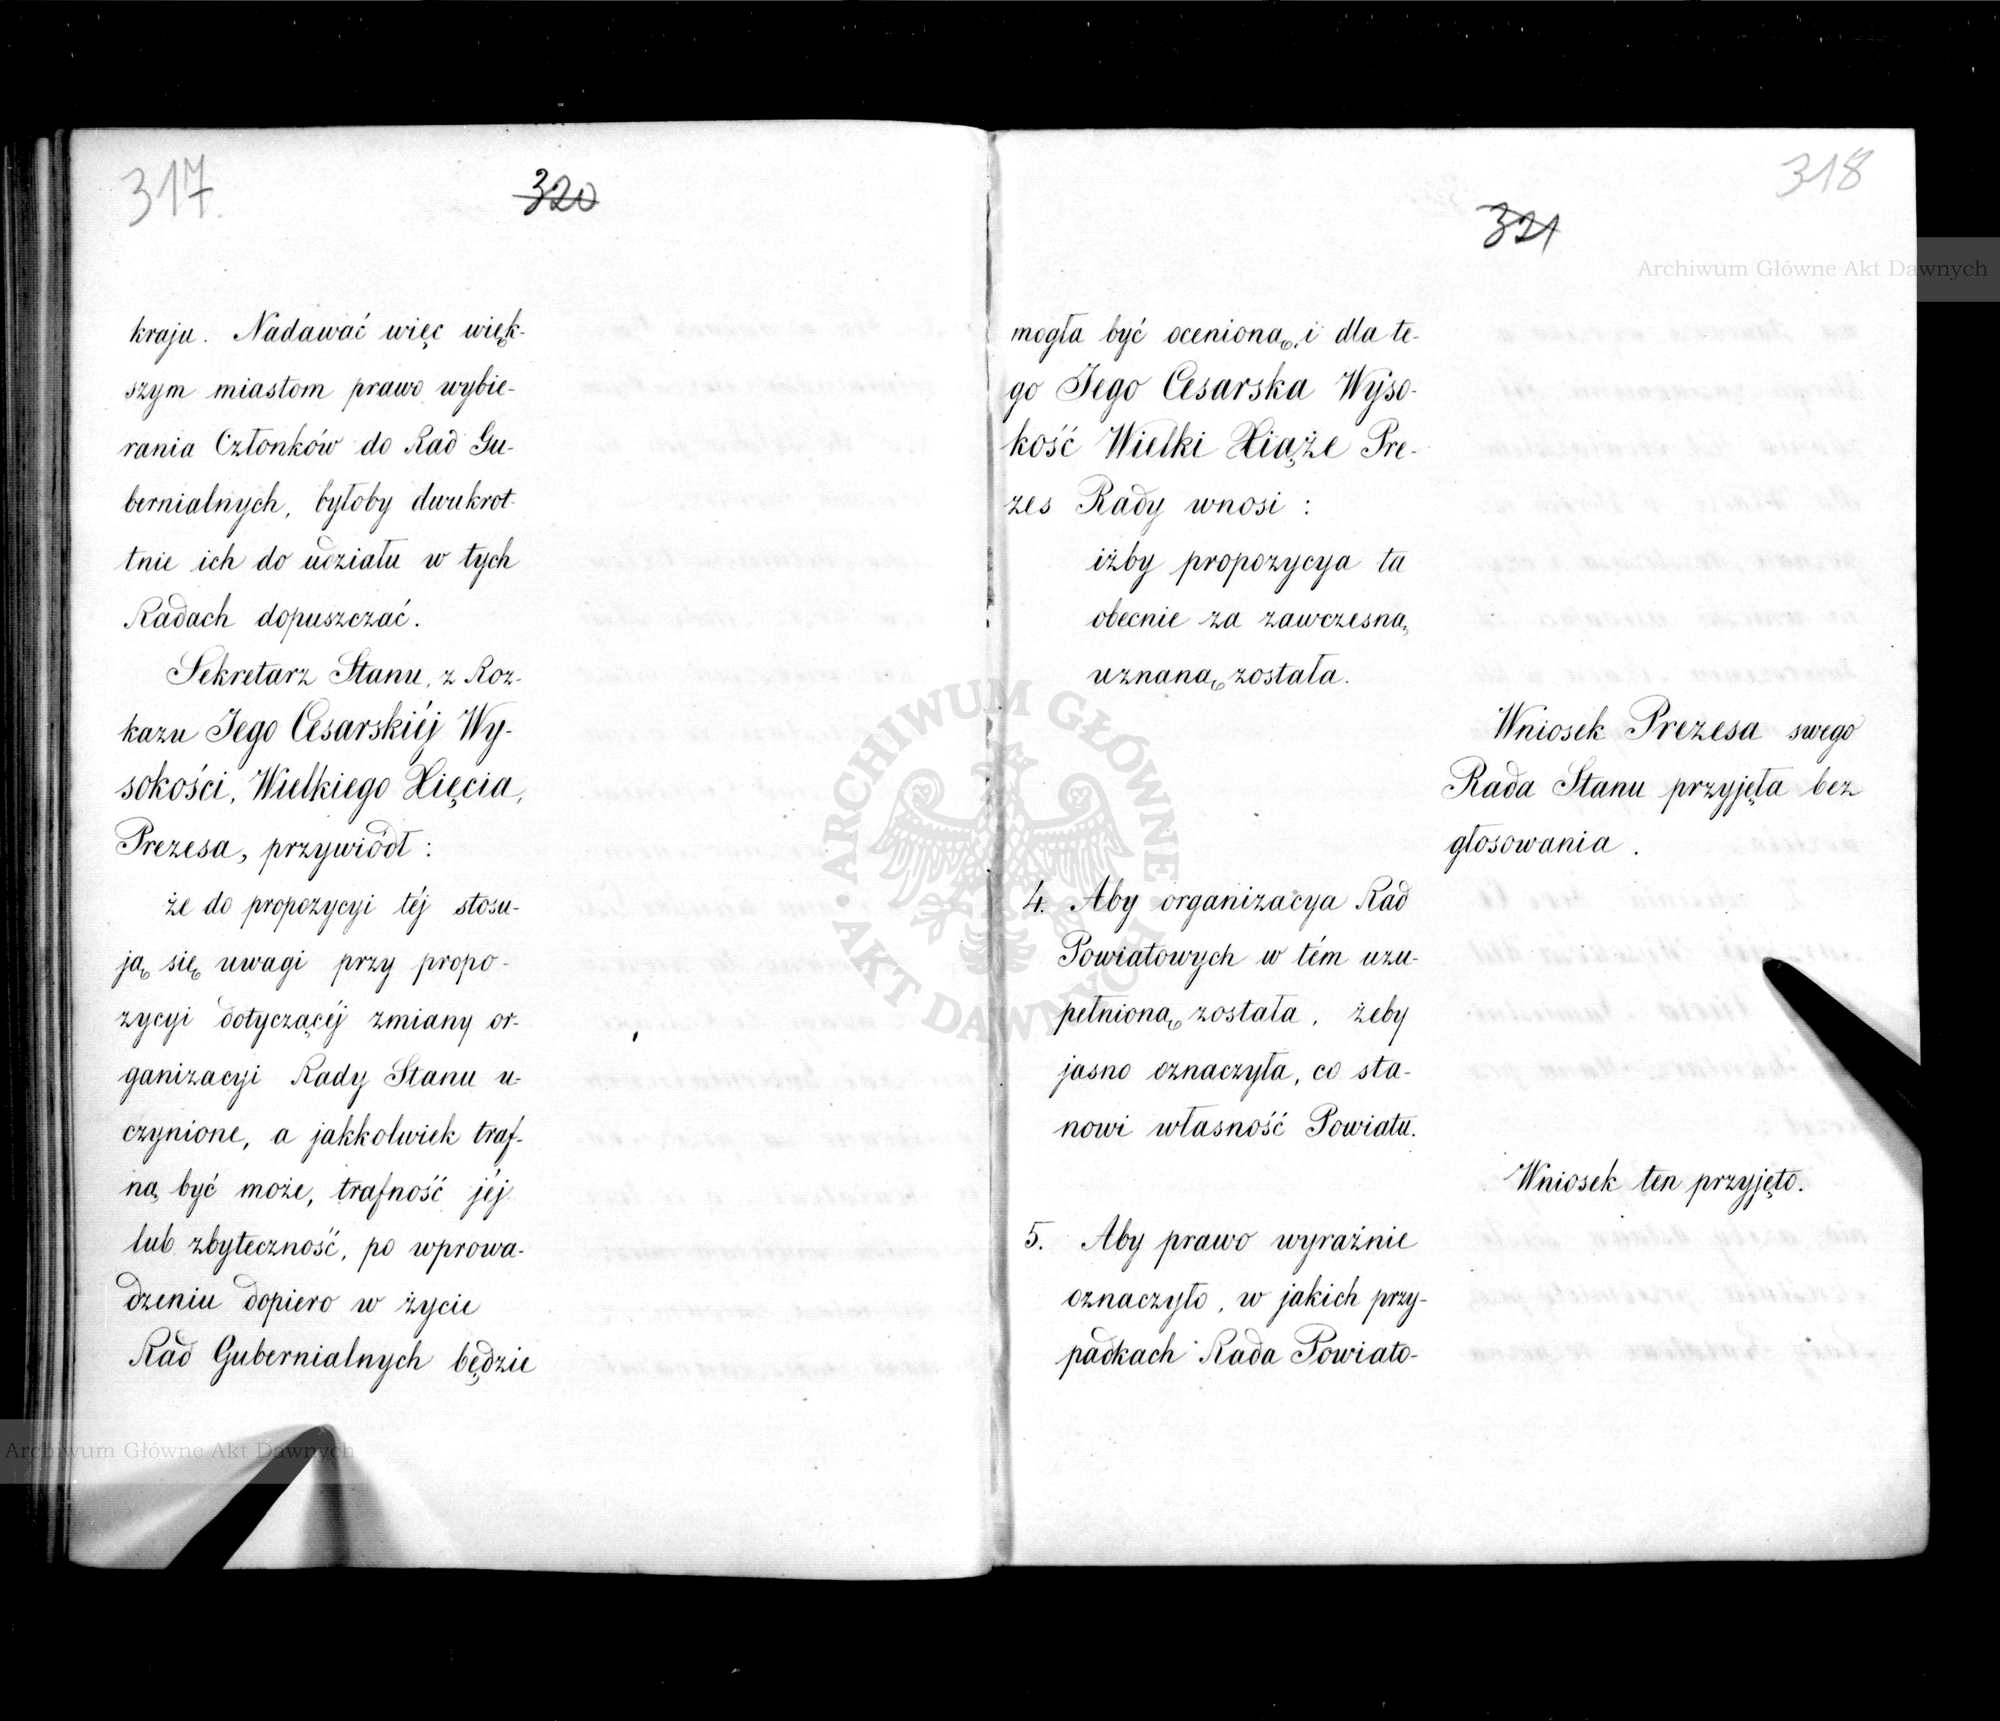 317.
320
kraju. Nadawać więc więk-
szym miastom prawo wybie-
rania Członków do Rad Gu-
bernialnych, byłoby dwukrot-
tnie ich do udziału w tych
Radach dopuszczać.
Sekretarz Stanu, z Roz-
kazu Jego Cesarskiéj Wy-
sokości, Wielkiego Xięcia,
Prezesa, przywiódł:
że do propozycyi téj stosu-
ją się uwagi przy propo-
zycyi dotyczącéj zmiany or-
ganizacyi Rady Stanu u-
czynione, a jakkolwiek traf-
ną być może, trafność jéj
lub zbyteczność, po wprowa-
dzeniu dopiero w życie
Rad Gubernialnych będzie
318
321
mogła być ocenioną, i dla te-
go Jego Cesarska Wyso-
kość Wielki Xiąże Pre-
zes Rady wnosi:
iżby propozycya ta
obecnie za zawczesną
uznaną została.
Wniosek Prezesa swego
Rada Stanu przyjęła bez
głosowania.
4. Aby organizacya Rad
Powiatowych w tém uzu-
pełnioną została, żeby
jasno oznaczyła, co sta-
nowi własność Powiatu.
Wniosek ten przyjęto.
5. Aby prawo wyraźnie
oznaczyło, w jakich przy-
padkach Rada Powiato-
Archiwum Główne Akt Dawnych
Archiwum Główne Akt Dawnych
ARCHIWUM GŁÓWNE AKT DAWNYCH